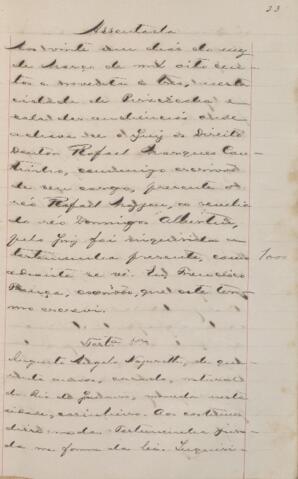 23
Assentada
Aos vinte um dias do mez
de Março de mil oito cen
tos e noventa e tres, nesta
cidade de Piracicaba e
sala das audiencias onde
se achava o Juiz de Direito
Doutor Rafael Marques Cou
tinho, commigo escrivão
de seu cargo, presente o
réo Rafael, a revelia
do réo Domingos
pelo Juiz foi inquirida a
testemunha presente, como
adiante se vê. Eu Francisco
França, escrivão, que este ter
mo escrevi.
1000
Testª 1ª
Augusto Angelo, de qua
renta annos, casado, natural
do Rio de Janeiro, morador nesta
cidade, Aos costumes
disse nada. Testemunha jura
da na forma da lei. Inquiri